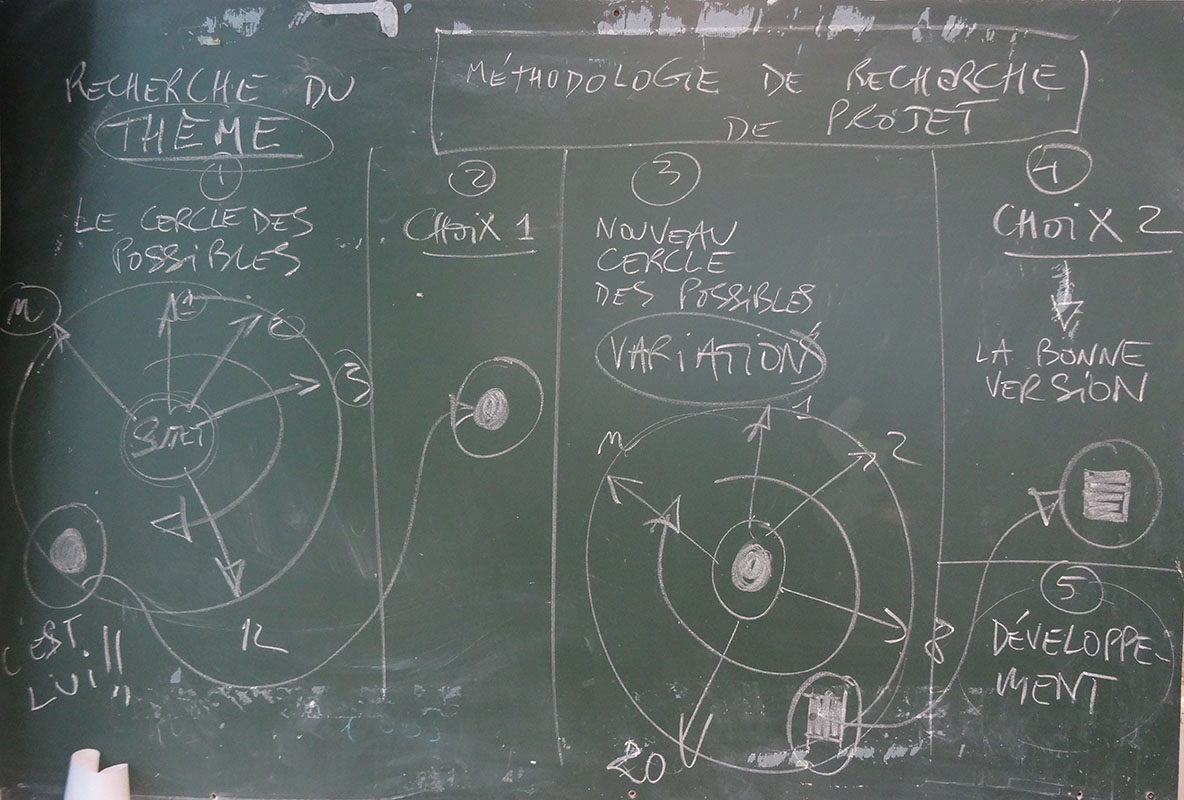 MÉTHODOLOGIE DE RECHERCHE
DE PROJET
RECHERCHE DU
THÈME
1
LE CERCLE DES
POSSIBLES
n
1
2
3
SUJET
12
C'EST
LUI!!
2
CHOIX 1
3
NOUVEAU
CERCLE
DES POSSIBLES
VARIATIONS
n
1
2
8
20
4
CHOIX 2
LA BONNE
VERSION
5
DÉVELOPPE-
MENT